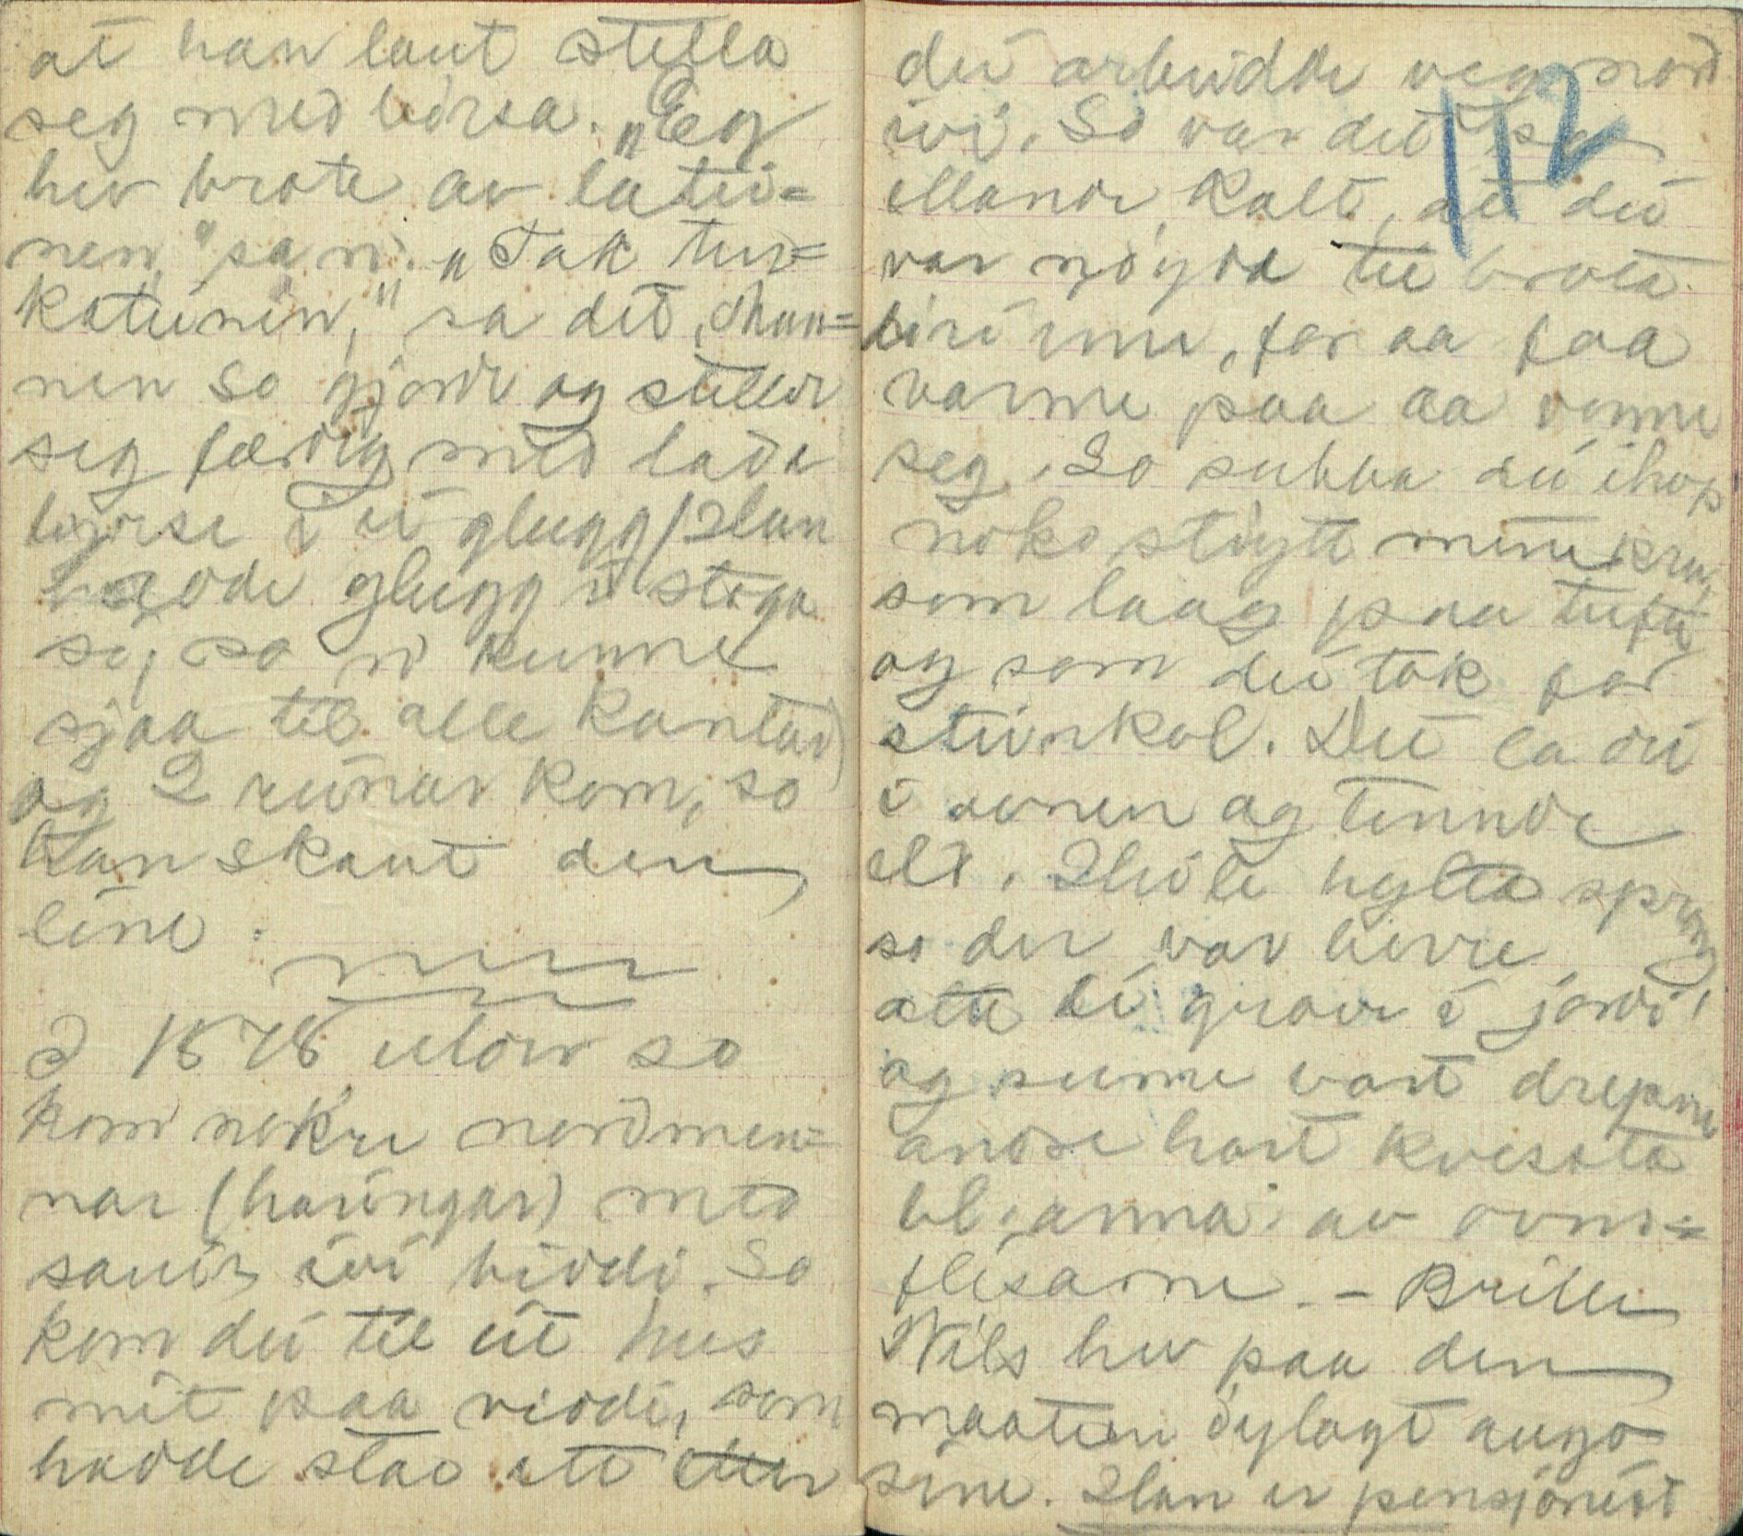 at han laut stella
seg med börsa. „Eg
hev brote av latei=
nen," sa n. „Tak tur=
kateinin," sa det. Man=
nen so gjorde og steller
seg færdig med lada
byrse i ei glugg (Han
hadde glugg i stoga
si, so n kunne
sjaa til alle kantar)
og 2 reinar kom, so
han skaut den
eine.
I 1878 elder so
kom nokre nordmen=
nar (haringar) med
sauir ivi viddi. So
kom dei til eit hus
mit paa viddi, som
hadde stae att etter
dei arbeidde veg nord
ivi. So var det so
illande kalt, at dei
var nöydde te brota
seg inn, for aa faa
varme paa aa vorme
seg. So subba dei ihop
noko stöytt minekru,
som laag paa tufti
og som dei tok for
steinkol. Det la dei
i omnen og tennde
eld. Heile hytta sprang
so der var berre
att ei grov i jordi
og sume vart drepne
andre hart kvesste
bl. anna av omn=
flisarne. – Brille
Nils hev paa den
maaten öylagt augo
sine. Han er pensjonert
112